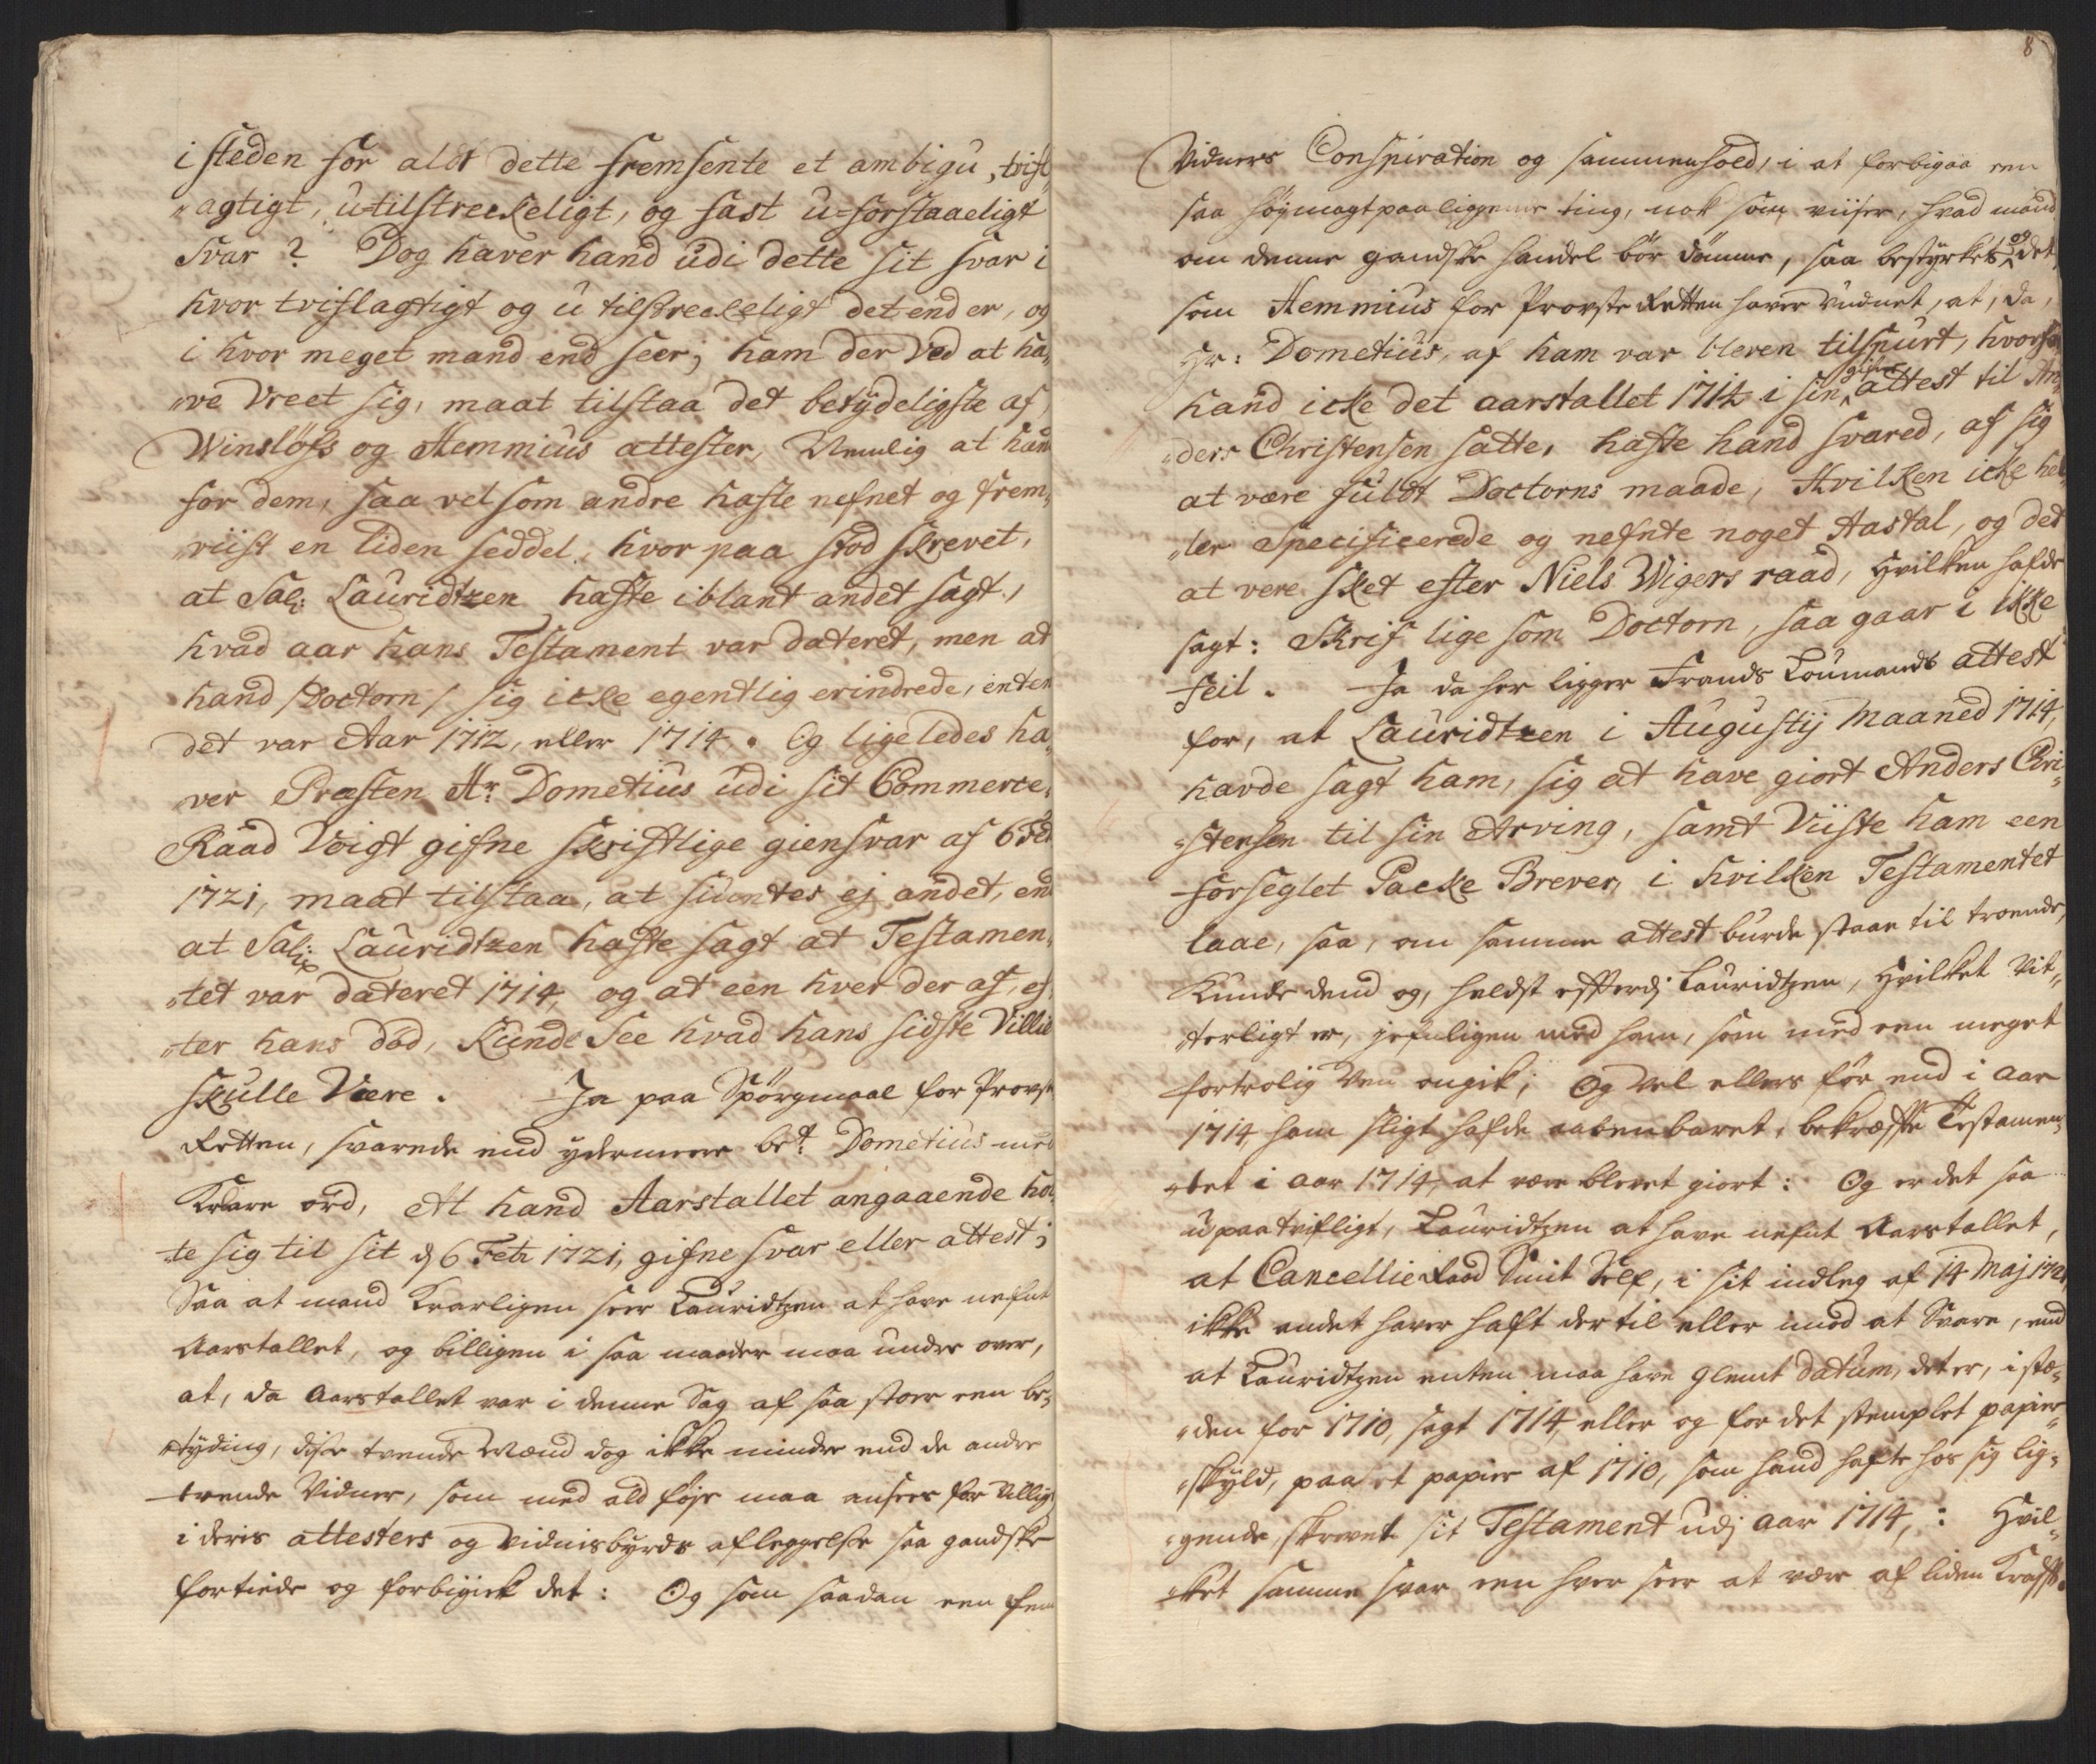 i steden for aldt dette fremsente et ambigu, tvifl-
"agtigt, u-tilstreckeligt, og fast u-forstaaeligt
Svar? Dog haver hand udi dette sit svar i
hvor tviflagtigt og u tilstreckeligt det end er, og
i hvor meget mand end seer, ham der ved at ha-
"ve vreet sig, maat tilstaa det betydeligste af
Winsløfs og Hemmius attester, Nemlig at hand
for dem, saa vel som andre hafte nefnet og frem-
"viist en liden seddel, hvor paa stod skrevet,
at Sal: Lauridtzen hafte iblant andet sagt,
hvad aar hans Testament var dateret, men at
hand /Doctorn/ sig icke egentlig erindrede, enten
det var Aar 1712, eller 1714. Og ligeledes ha-
ver Præsten Hr. Dometius udi sit Commerce-
Raad Voigt gifne skriftlige giensvar af 6 Feb
1721, maat tilstaa, at ej andet, end
at Sal: Lauridtzen hafte sagt at Testamen-
"tet var dateret 1714, og at een hver der af, ef-
"ter hans død, kunde See hvad hans sidste Villie
skulle Være. Ja paa Spörgmaal for Provste
Retten, svarede end ydermeere bet Dometius med
klare ord, At hand Aarstallet angaaende hol-
te sig til sit d 6 Febr 1721, gifne svar eller attest;
Saa at mand klarligen seer Lauridtzen at have nefnt
Aarstallet, og billigen i saa maader maa undre over,
at, da Aarstallet var i denne Sag af saa stoer een be-
tyding, disse tvende Mænd dog ikke mindre end de andre
tvende Vidner, som med ald föje maa ansees for villig
i deris attesters og vidnisbyrds aflæggelse saa gandske
fortiede og forbigick det: Og som saadan een fem
8
Vidners Conspiration og sammenhold, i at forbigaa een
saa höymagtpaaliggende ting, nok som viiser, hvad mand
om denne gandske handel bör dömme, saa bestyrkes og det,
som Hemmius for Provste Retten haver vidnet, at, da,
Hr: Dometius, af ham var bleven tilspurt, hvorfor
hand icke det aarstallet 1714 i sin gifne attest til An-
"ders Christensen satte, hafte hand svared, af sig
at være fuldt Doctorns maade, Hvilken icke hel-
"ler Specificerede og nefnte noget Aastal, og det
at vere sket efter Niels Wigers raad, Hvilken hafde
sagt: Skrif lige som Doctorn, saa gaar i ikke
feil. Ja da her ligger Frands Loumands attest
for, at Lauridtzen i Augustij Maaned 1714,
havde sagt ham, sig at have giort Anders Chri-
"stensen til sin Arving, samt Viiste ham een
forseglet Packe Brever, i hvilken Testamentet
laae, saa, om samme attest burde staae til troende,
Kunde dend og, heldst efterdj Lauridtzen, Hvilket Vit-
"terligt er, jefnligen med ham, som med een meget
fortrolig Ven omgik; Og vel ellers för end i Aar
1714 ham sligt hafde aabenbaret, bekræfte Testamen-
"tet i Aar 1714, at være blevet giort: Og er det saa
upaatvifligt, Lauridtzen at have nefnt Aarstallet,
at Cancellie Raad Smit Self, i sit indleg af 14 Maj 1721
ikke andet haver hafft der til eller imod at Svare, end
at Lauridtzen enten maa have glemt datum, det er, i stæ-
"den for 1710, sagt 1714, eller og for det stemplet papiirs-
"skyld, paa et papiir af 1710, som hand hafte hos sig lig-
"gende, skrevet sit Testament udj Aar 1714,: Hvil-
"ket samme svar een hver seer at være af liden Kraft.